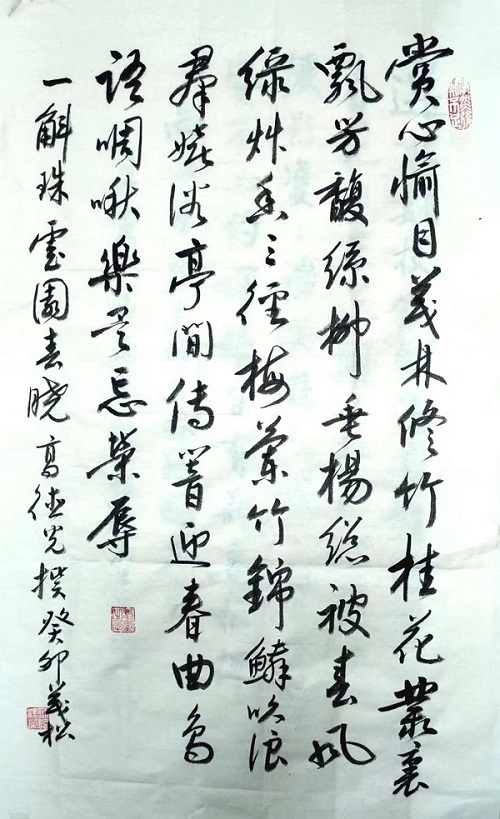 賞心愉目茂林修竹桂花叢裏
飄芳馥綠柳垂楊總被春風
綠艸香三徑梅蘭竹錦鱗吹浪
羣嬉浴亭間傳響迎春曲鳥
語啁啾樂忘榮辱
一斛珠園春曉高德光撰癸卯茂松